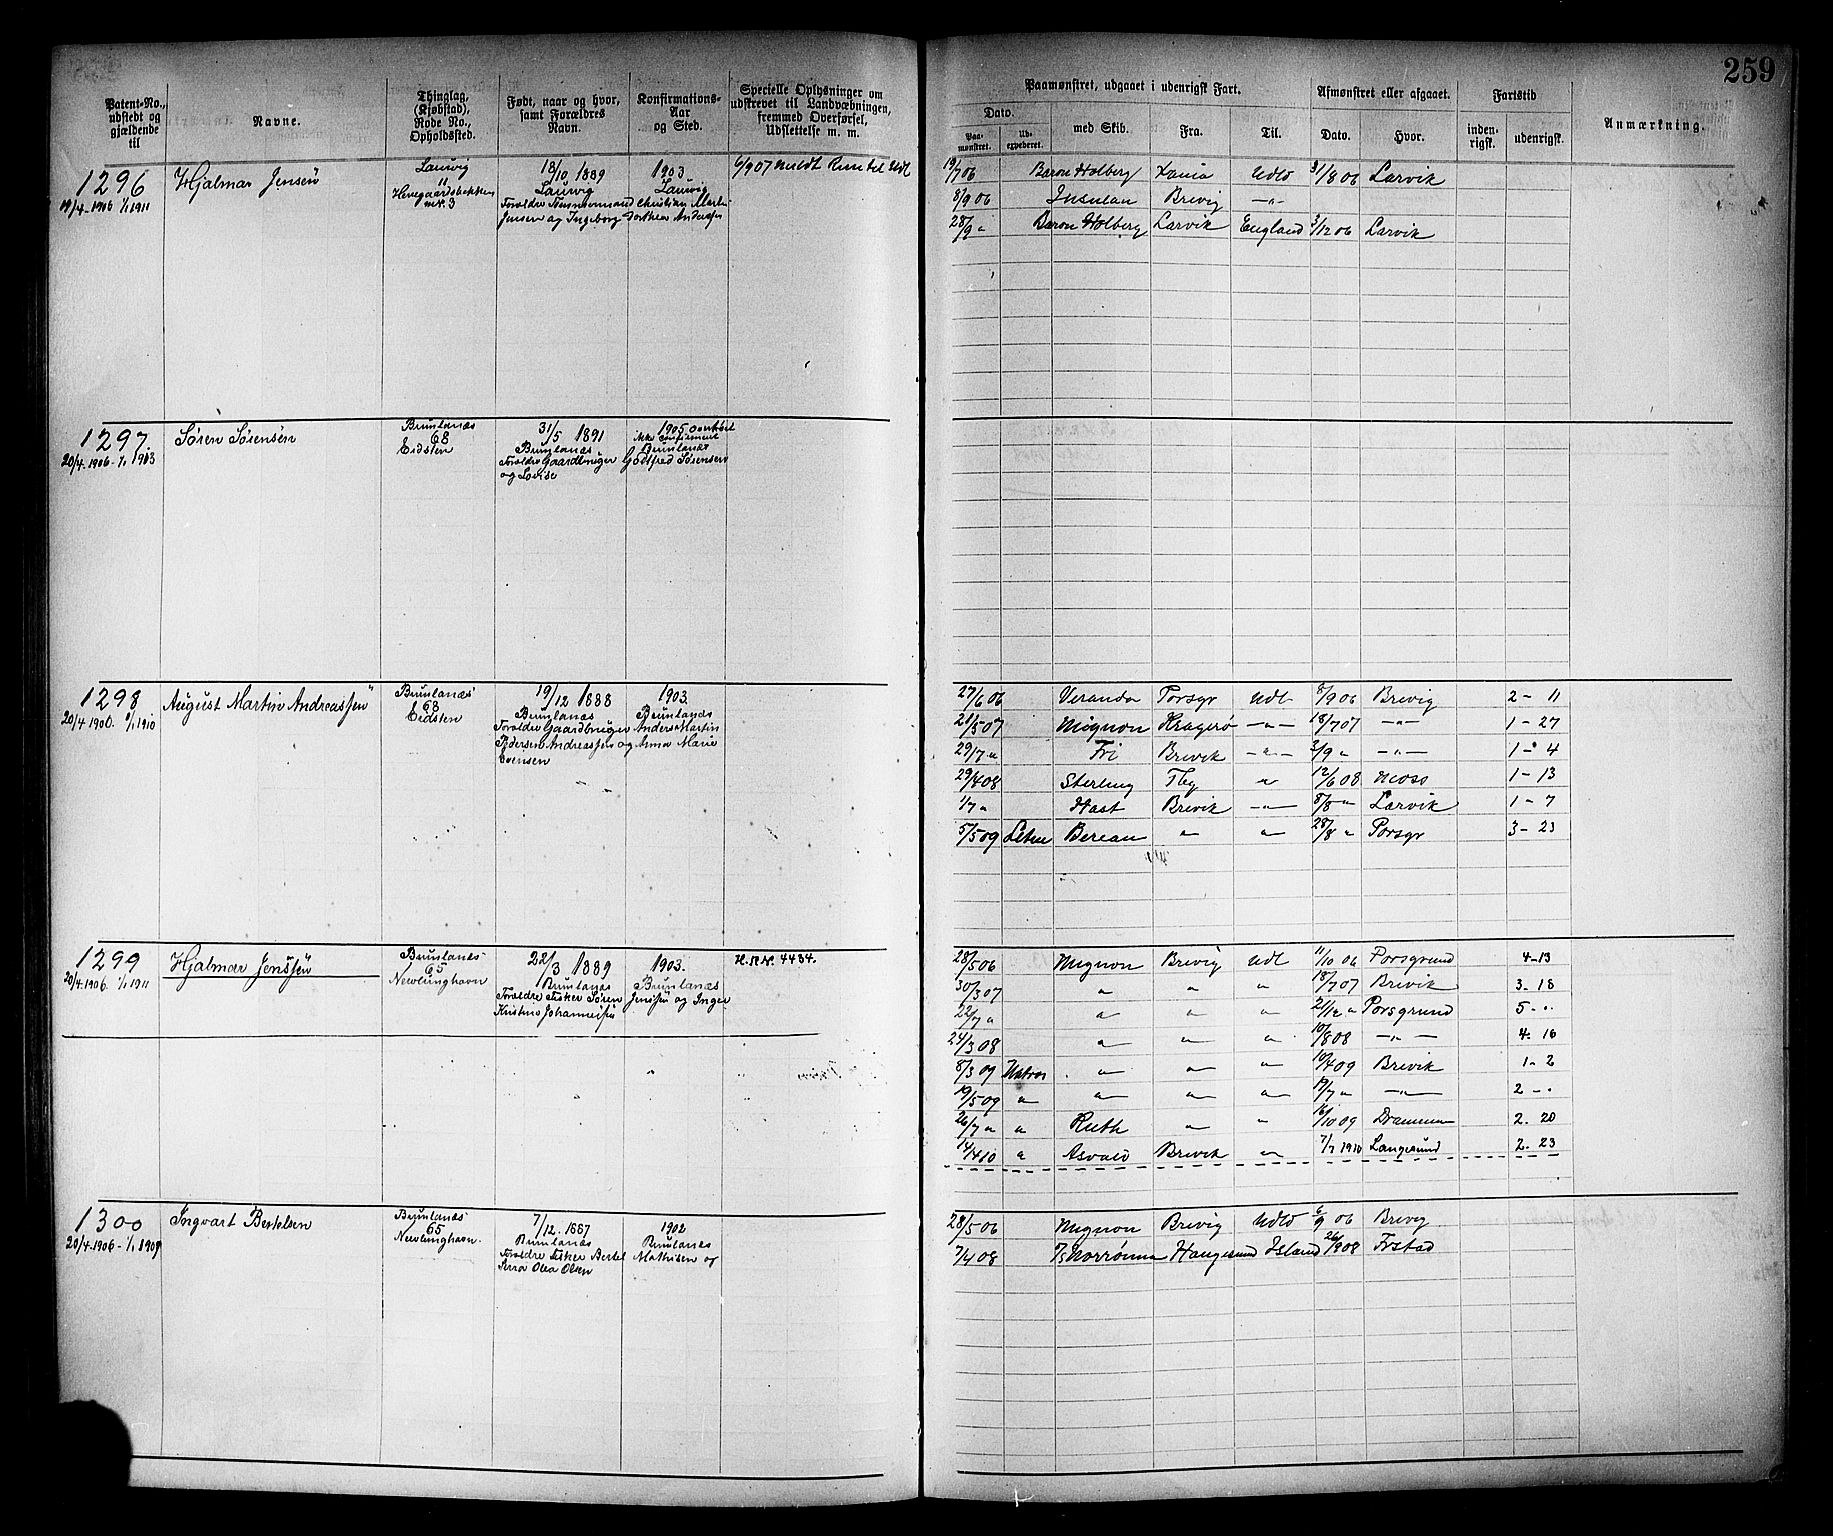 259
Patent-No., udstedt og gjældende til
Navne.
Thinglag, (Kjøbstad), Rode No., Opholdssted.
Født, naar og hvor, samt Forældres Navn.
Konfirmations- Aar og Sted.
Specielle Oplysninger om udskrevet til Landværbningen, fremmed Overførsel, Udslettelse m. m.
Paamønstret, udgaaet i udenrigsk Fart.
Dato.
Paa- mønstret.
Ud- expederet.
med Skib.
Fra.
Til.
Afmønstret eller afgaaet.
Dato.
Hvor.
Fartstid
inden- rigsk.
udenrigsk.
Anmærkning.
1296
19/4-1906 1/1 1911
Hjalmar Jensen
Laurvig
11
18/10 1889
Laurvig
1903
Laurvig
Forældre Tømmermand Christian Martin
Jensen og Ingeborg Dorthea Andersen
6/9 07 meldt
19/7 06 Baron Holberg Xania Udld 31/8 06 Larvik
8/9 06 Insulan Brevig -"-
28/9 " Baron Holberg Larvik England 3/12 06 Larvik
1297
20/4.1906-1/1 1913
Søren Sørensen
Brunlanæs
68
Eidsten
31/5 1891
Brunlanæs
1905 overhørt
ikke confirmeret
Brunlanæs
Forældre Gaardbruger Godtfred Sørensen
og Lovise
1298
20/4.1906. 1/1 1910
August Martin Andreassen
Brunlanæs
68
Eidsten
19/12 1888
Brunlanæs
1903
Brunlanæs
Forældre Gaardbruger Anders Martin
Pedersen Andreassen og Anna Marie
Evensen
27/6 06 Veranda Porsgr Udl 8/9 06 Brevig 2-11
21/5 07 Mignon Kragerø -"- 18/7 07 -"- 1-27
29/7 " Fri Brevik -"- 3/9 " -"- 1-4
29/4 08 Sterling Tbg " 12/6 08 Moss 1-13
1/7 " Hast Brevik -"- 8/8 " Larvik 1-7
5/5 09 Letm Berean " " 28/8 " Porsgr 3-23
1299
20/4.1906. 1/1 1911
Hjalmar Jenssen
Brunlanæs
65
Nevlunghavn
22/3 1889
Brunlanæs
1903.
Brunlanæs
Forældre Fisker Søren Jenssen og Inger
Kristine Johannessen
H.R.Nr. 4434.
28/5 06 Mignon Brevig Udl 11/10 06 Porsgrund 4-13
30/3 07 " " " 18/7 07 Brevik 3-18
22/7 " " " " 21/12 " Porsgrund 5-"
24/3 08 " " " 10/8 08 -"- 4-16
8/3 09 Matros " " " 10/4 09 Brevik 1-2
19/5 09 " " " " 19/7 " -"- 2-"
26/7 " " Ruth " " 16/10 09 Drammen 2-20
14/4 10 " Asvald Brevik " 7/7 1910 Langesund 2-23
1300
20/4.1906-1/1 1909
Ingvart Bertelsen
Brunlanæs
65
Nevlunghavn.
7/12.1887
Brunlanæs
1902
Brunlanæs
Forældre Fisker Bertel Mathisen og
Olea Olsen
28/5 06 Mignon Brevig Udld 6/9 06 Brevig
7/4 08 Norrønna Haugesund Island 26/9 08 Frstad